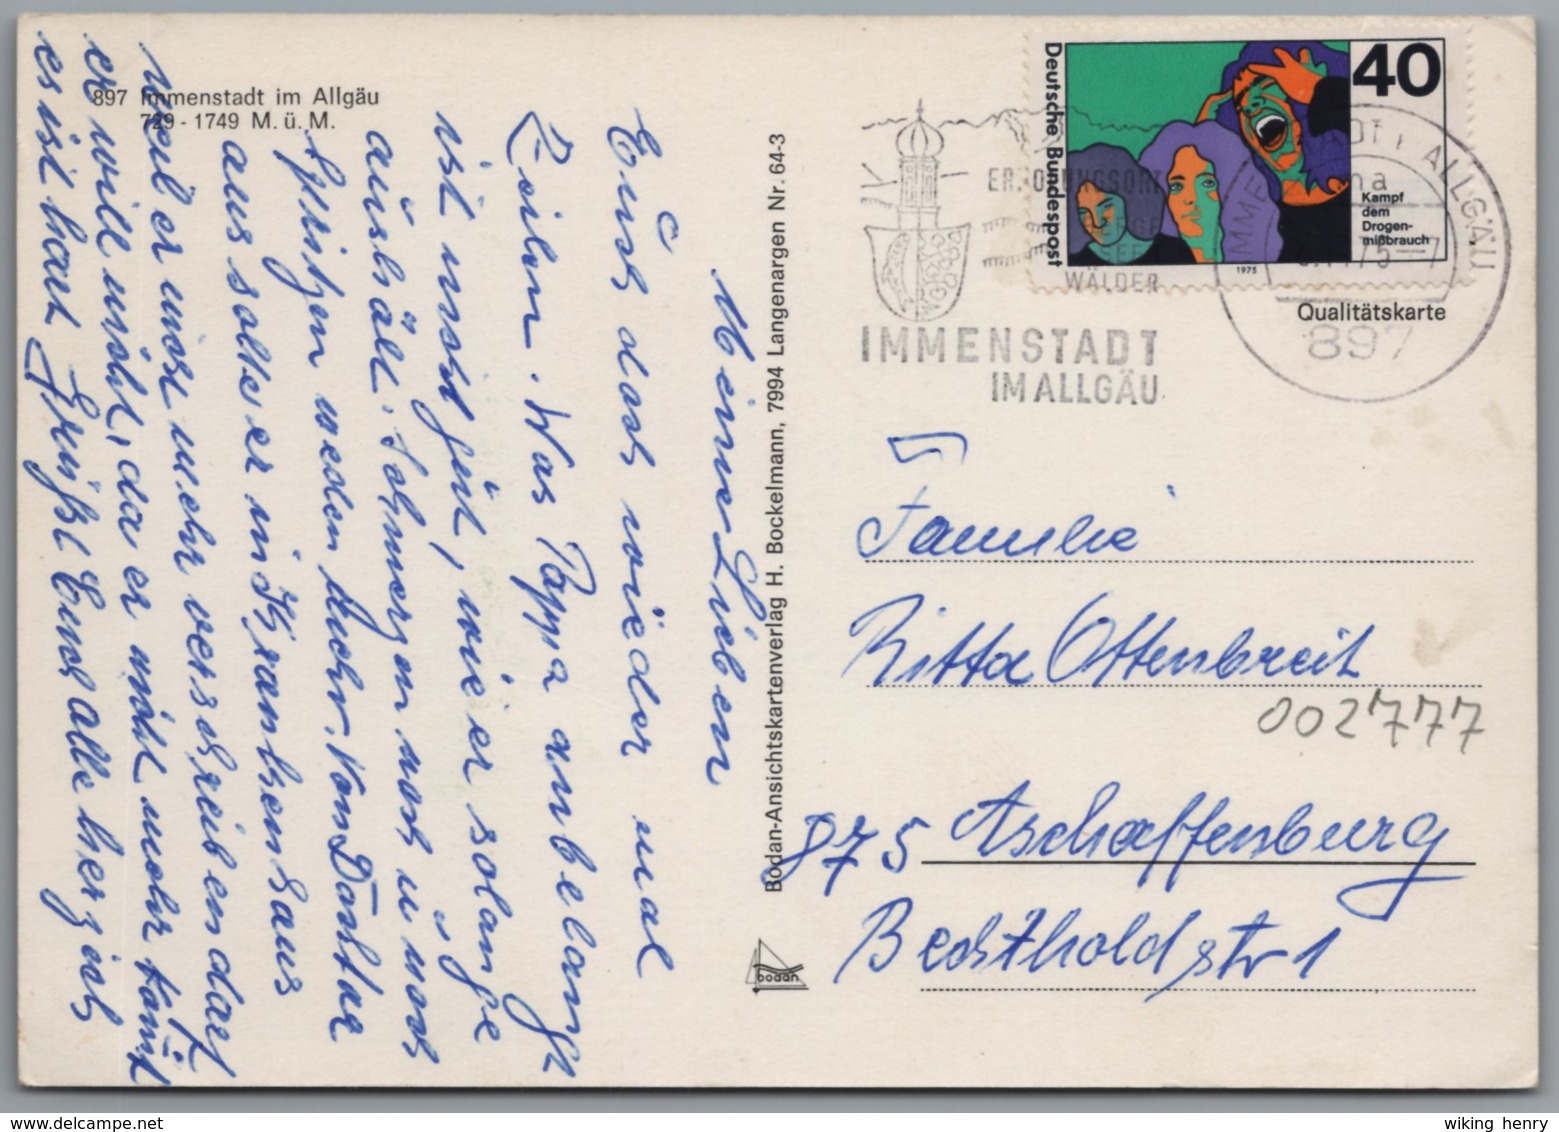 897 Immenstadt im Allgäu
729 - 1749 M. ü. M.
Meine Lieben
Euch doch wieder mal
Zeilen. Was Papa anbelangt
ist nicht gut, wie er solange
aushält. Schmerzen noch u. noch
Spritzen weden mehr. Von Doktar
aus sollte er in Krankenhaus
weil er nicht mehr verschreiben darf
er will nicht, da er nicht mehr kämt
es ist hart Grüßt Euch alle herzich
Bodan-Ansichtskartenverlag H. Bockelmann, 7994 Langenargen Nr. 64-3
bodan
Deutsche Bundespost
40
Kampf
dem
Drogen-
mißbrauch
1975
ERHOLUNGSORT
WÄLDER
IMMENSTADT
IM ALLGÄU
897
Qualitätskarte
Familie
Ritta Ottenbreit
002777
875 Aschaffenburg
Bechtholdstr 1
wiking henry